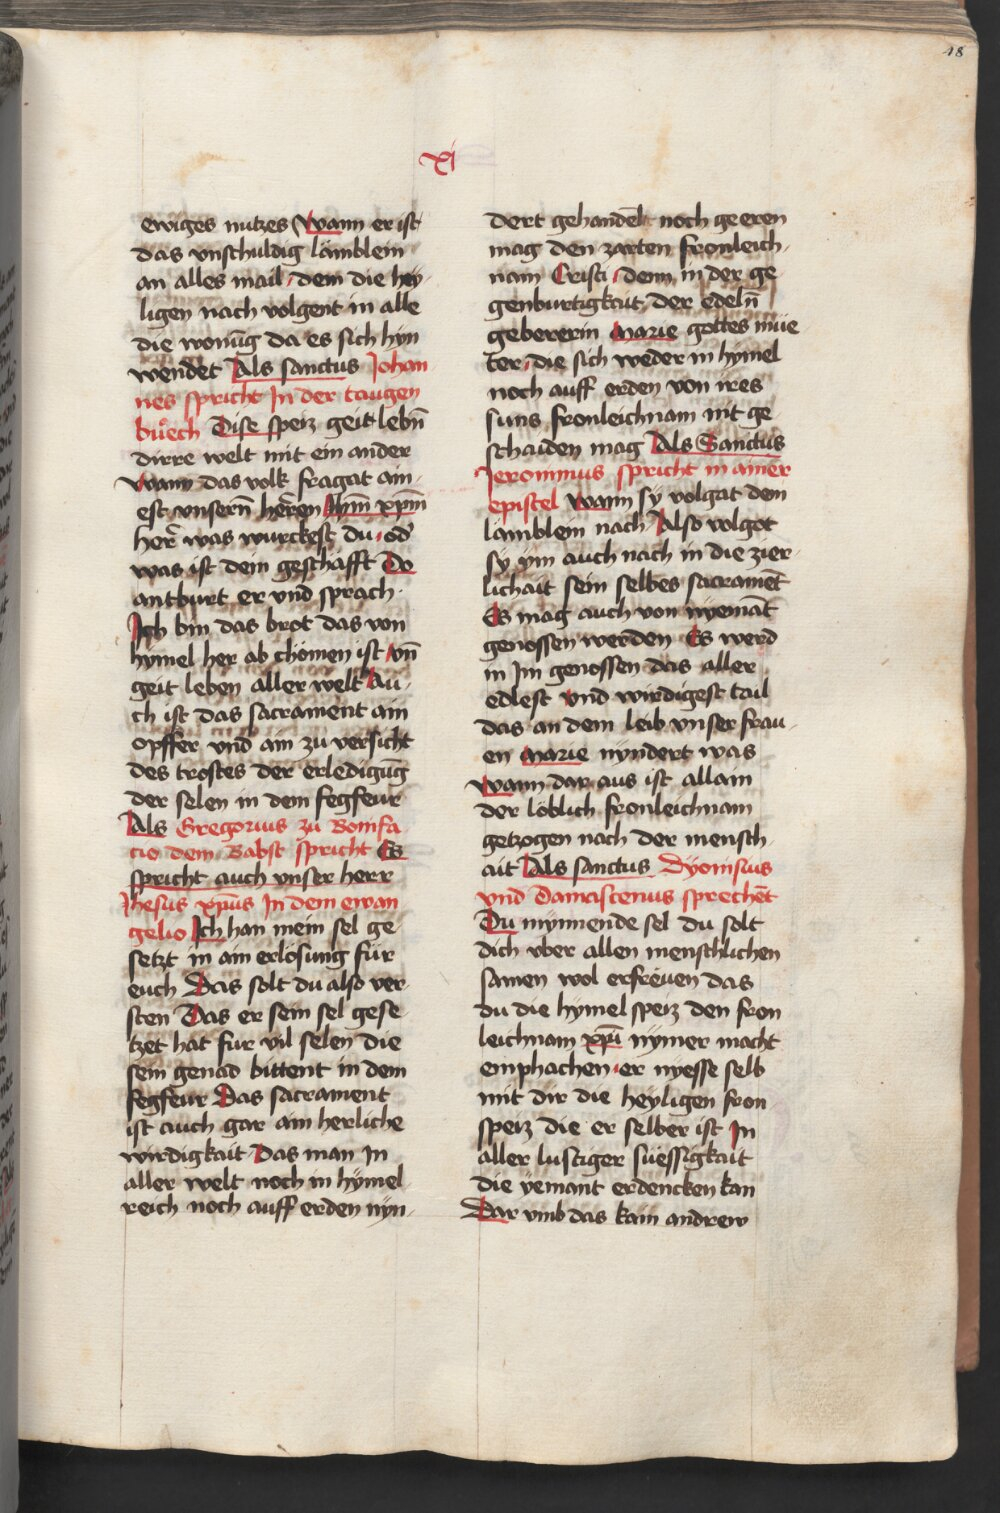 18
xi
ewiges nutzes Wann er ist
das vnschuldig lämblein
an alles mail, dem die hey-
ligen nach volgent in alle
die wonūg da es sich hyn
wendet Als sanctus Johan
nes spricht In der taugen
buͦech Dise speiz geit lebn̄
dirre welt mit ein ander
Wann das volk fragat ain-
est vnsern̄ heͬren Jhm̄ xpm̄
heͬr was wurckest du, od̕
was ist dein geschäfft Do
antburt er vnd sprach.
Ich bin das brot das von
hymel her ab chomen ist vn̄
geit leben aller welt Au-
ch ist das sacrament ain
opffer vnd ain zu versicht
des trostes der erledigūg
der selen in dem fegfeur
Als Gregorius zu Bonifa
cio dem Babst spricht Es
spricht auch vnser herr
Jhesus xp̄us In dem ewan
gelio Ich han mein sel ge-
setzt in ain erlosung für
euch Das solt du also ver-
sten Das er sein sel gese-
tzet hat für vil selen die
sein genad bittent in dem
fegfeur Das sacrament
ist auch gar ain herliche
wirdigkait Das man In
aller welt noch in hymel
reich noch auff erden nyn-
dert gehandelt noch geeren
mag den zarten fronleich-
nam Cristi, denn in der ge-
genburtigkait der edeln̄
gebererin Marie gottes mue
ter, die sich weder in hymel
noch auff erden von ires
suns fronleichnam nit ge
schaiden mag Als Sanctus
Jeronimus spricht in ainer
epistel Wann sy volgat dem
lämblein nach Also volgot
sy ym auch nach in die zier-
lichait sein selbes sacramēt
Es mag auch von nyemāt
genossen werden Es werd
in Im genossen das aller
edlest vnd wirdigest tail
das an dem leib vnser frau-
en Marie nyndert was
Wann dar aus ist allain
der löblich fronleichnam
getzogen nach der mensch-
ait Als sanctus Dyonisius
vnd Damascenus sprechēt
Du mynnende sel du solt
dich vber allen menschlichen
samen wol erfreuen das
du die hymel speiz den fron
leichnam xp̄i nymer macht
emphachen, er nyesse selb
mit dir die heyligen fron
speiz die er selber ist In
aller lustiger suessigkait
die yemant erdencken kan
Dar vmb das kain andrew